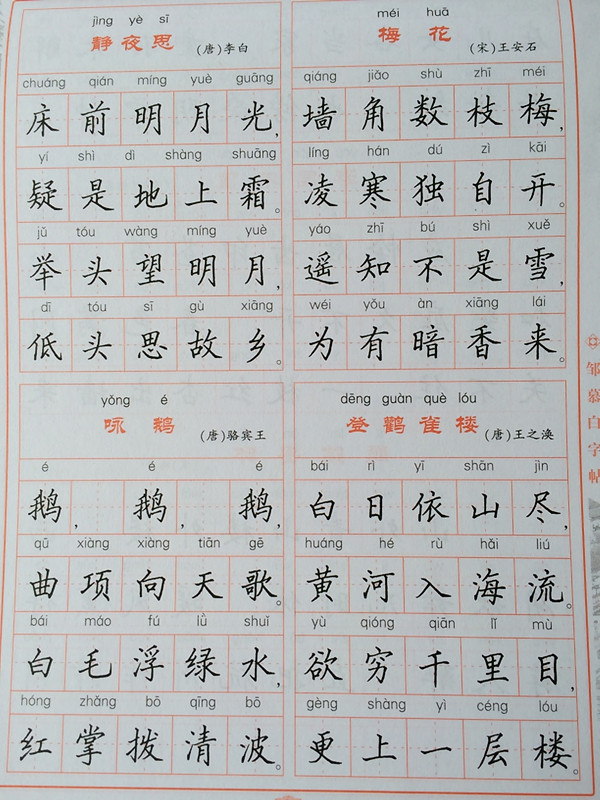 jìng yè sī
静夜思 (唐)李白
chuáng qián míng yuè guāng
床前明月光，
yí shì dì shàng shuāng
疑是地上霜。
jǔ tóu wàng míng yuè
举头望明月，
dī tóu sī gù xiāng
低头思故乡。
méi huā
梅花 (宋)王安石
qiáng jiǎo shù zhī méi
墙角数枝梅，
líng hán dú zì kāi
凌寒独自开。
yáo zhī bú shì xuě
遥知不是雪，
wéi yǒu àn xiāng lái
为有暗香来。
yǒng é
咏鹅 (唐)骆宾王
é é é
鹅，鹅，鹅，
qū xiàng xiàng tiān gē
曲项向天歌。
bái máo fú lǜ shuǐ
白毛浮绿水，
hóng zhǎng bō qīng bō
红掌拨清波。
dēng guàn què lóu
登鹳雀楼 (唐)王之涣
bái rì yī shān jìn
白日依山尽，
huáng hé rù hǎi liú
黄河入海流。
yù qióng qiān lǐ mù
欲穷千里目，
gèng shàng yì céng lóu
更上一层楼。
邹慕白字帖